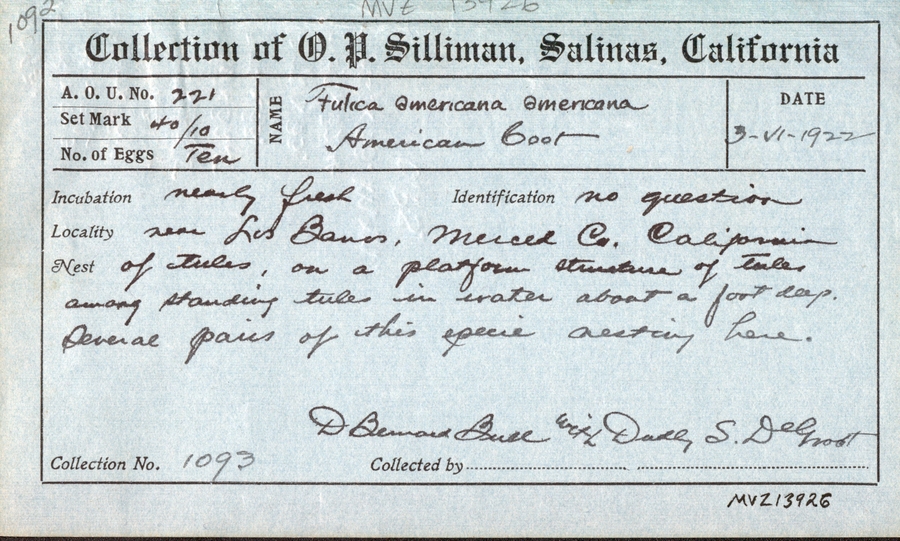 1092
MVZ 13926
Collection of O. P. Silliman, Salinas, California
A. O. U. No. 221
Set Mark 40/10
No. of Eggs Ten
NAME
Fulica americana americana
American Coot
DATE
3-VI-1922
Incubation nearly fresh Identification no question
Locality near Los Banos, Merced Co. California
Nest of tules, on a platform structure of tules
among standing tules in water about a foot deep.
Several pairs of this specie nesting here.
D Bernard Bull with Dudly S. DeGroot
Collection No. 1093 Collected by
MVZ13926